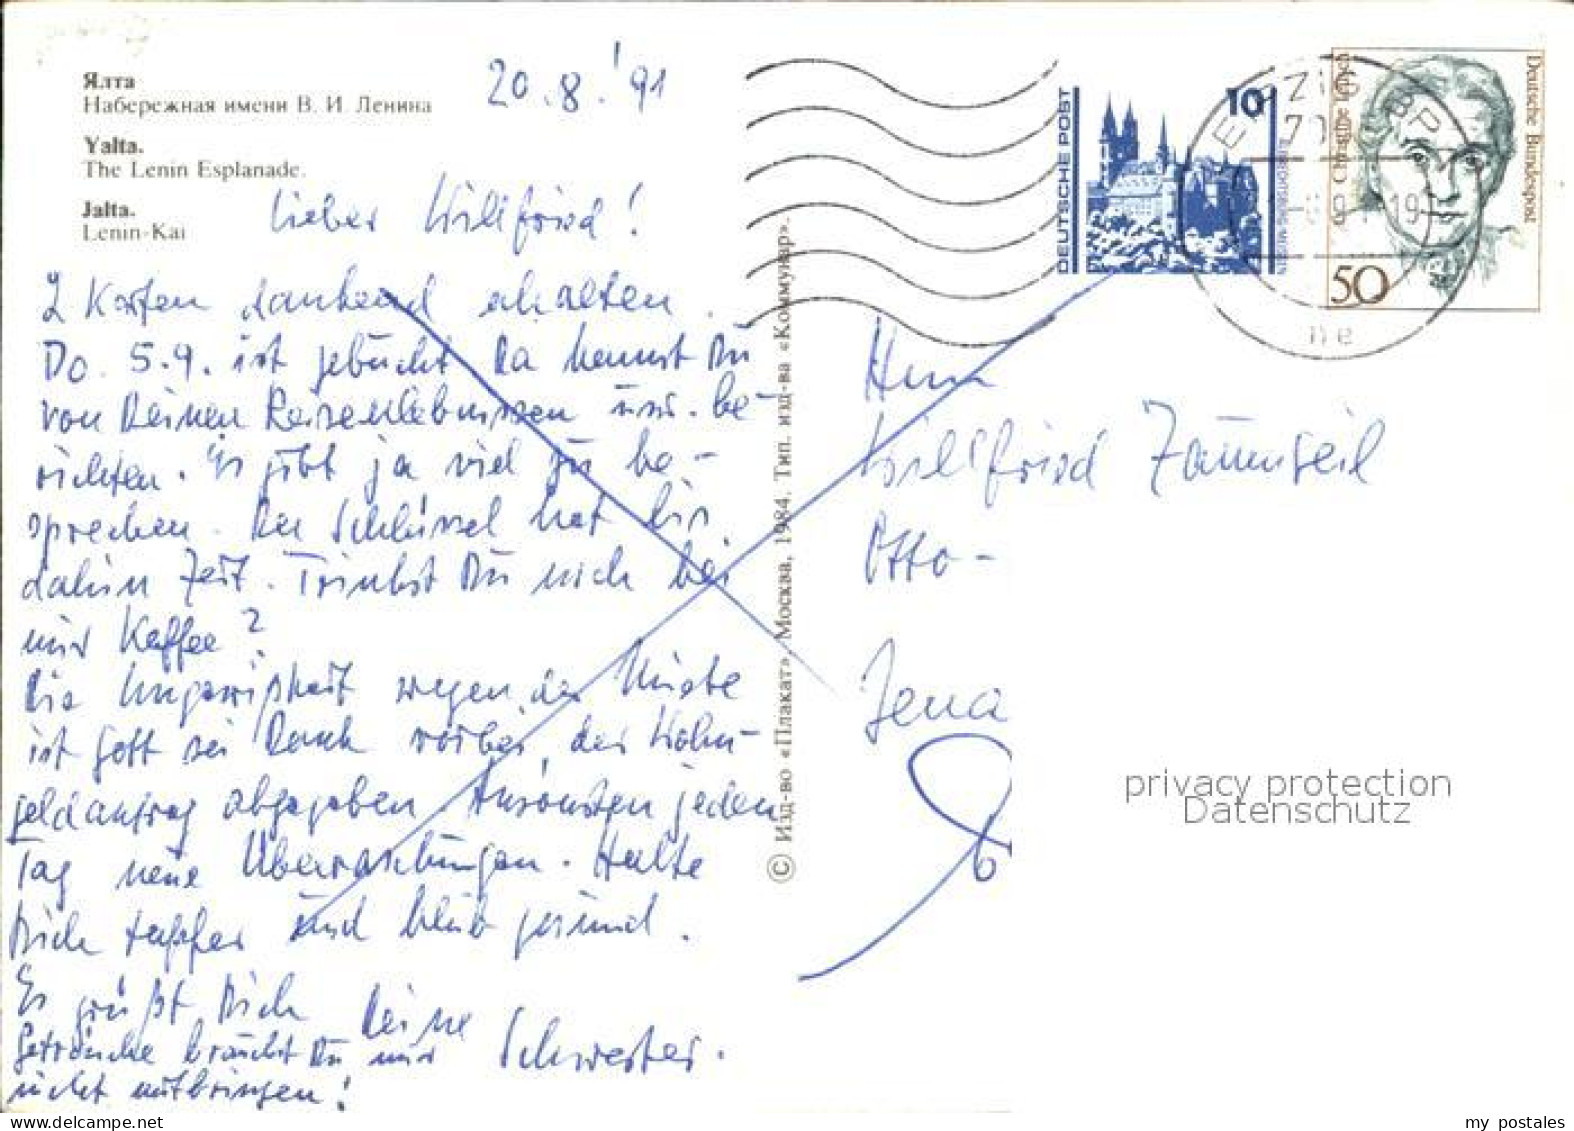 Ялта
Набережная имени В. И. Ленина
Yalta.
The Lenin Esplanade.
Jalta.
Lenin-Kai
20.8.'91
Lieber Willfried!
2 Karten dankend erhalten.
Do. 5.9. ist gebucht da kannst Du
von Deinen Reiseerlebnissen uns be-
richten. Es gibt ja viel zu be-
sprechen. Der Schlüssel hat bis
dahin Zeit. Trinkst Du noch bei
mir Kaffee?
Die Ungewißheit wegen der Miete
ist Gott sei Dank vorbei, der Wohn-
geldantrag abgegeben. Ansonsten jeden
Tag neue Überraschungen. Halte
Dich tapfer und bleib gesund.
Es grüßt Dich Deine
Schwester.
Getränke brauchst Du mir
nicht mitbringen!
© Изд-во «Плакат». Москва, 1984. Тип. изд-ва «Коммунар».
DEUTSCHE POST
10
ALBRECHTSBURG MEISSEN
Deutsche Bundespost
50
LEIPZIG BPA
Herrn
Willfried
Otto-
Jena
privacy protection
Datenschutz
my postales